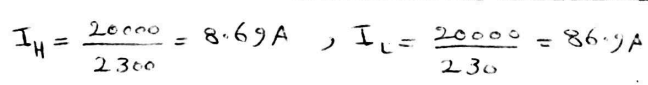 I_H = 20000/2300 = 8.69A , I_L = 20000/230 = 86.9A